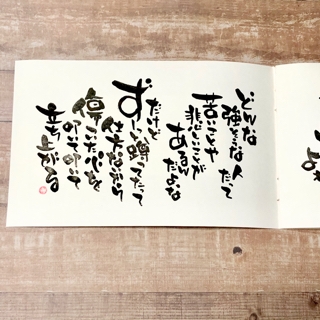 どんな
強そうな人だって
苦いことや
悲しいことが
あるんだよな
だけど
ずーっと蹲ってたって
仕方ないから
傷ついた心を
叩いて叩いて
立ち上がる